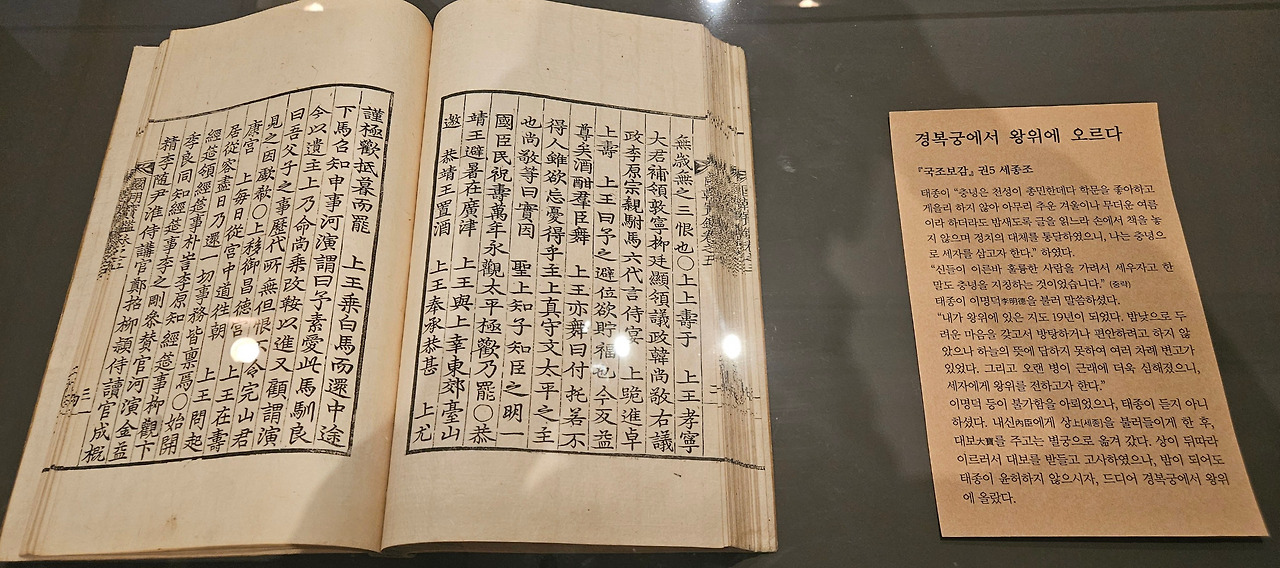 無歲無之三恨也○上上壽于 上王孝寧
大君補領敦寧柳廷顯領議政韓尚敬右議
政李原宗親駙馬六代言侍宴 上跪進卓
上壽 上王曰予之避位欲貯福也今反益
尊矣酒酣羣臣舞 上王亦舞曰付托若不
得人雖欲忘憂得乎主上真守文太平之主
也尚敬等曰實因 聖上知子知臣之明一
國臣民祝壽萬年永觀太平極歡乃罷○恭
靖王避暑在廣津 上王與上幸東郊臺山
邀 恭靖王置酒 上王奉承恭甚 上尤
謹極歡抵暮而罷 上王乘白馬而還中途
下馬召知申事河演謂曰予素愛此馬馴良
今以遺主上乃命尚乘改鞍以進又顧謂演
曰吾父子之事歷代所無但恨 令完山君
見之因歔欷○上移御昌德宮 上王在壽
康宮 上每日從宮中道往朝 上王問起
居從容盡日乃還一切事務皆稟焉○始開
經筵領經筵事朴訔李原知經筵事柳觀卞
季良同知經筵事李之剛參贊官河演金益
精李隨尹淮侍講官鄭招柳穎侍讀官成槪
國朝寶鑑卷之五
三
경복궁에서 왕위에 오르다
『국조보감』 권5 세종조
태종이 “충녕은 천성이 총민한데다 학문을 좋아하고
게을리 하지 않아 아무리 추운 겨울이나 무더운 여름
이라 하더라도 밤새도록 글을 읽느라 손에서 책을 놓
지 않으며 정치의 대체를 통달하였으니, 나는 충녕으
로 세자를 삼고자 한다.” 하였다.
“신들이 이른바 훌륭한 사람을 가려서 세우자고 한
말도 충녕을 지칭하는 것이었습니다.” (중략)
태종이 이명덕李明德을 불러 말씀하셨다.
“내가 왕위에 있은 지도 19년이 되었다. 밤낮으로 두
려운 마음을 갖고서 방탕하거나 편안하려고 하지 않
았으나 하늘의 뜻에 답하지 못하여 여러 차례 변고가
있었다. 그리고 오랜 병이 근래에 더욱 심해졌으니,
세자에게 왕위를 전하고자 한다.”
이명덕 등이 불가함을 아뢰었으나, 태종이 듣지 아니
하셨다. 내신內臣에게 상上[세종]을 불러들이게 한 후,
대보大寶를 주고는 별궁으로 옮겨 갔다. 상이 뒤따라
이르러서 대보를 받들고 고사하였으나, 밤이 되어도
태종이 윤허하지 않으시자, 드디어 경복궁에서 왕위
에 올랐다.